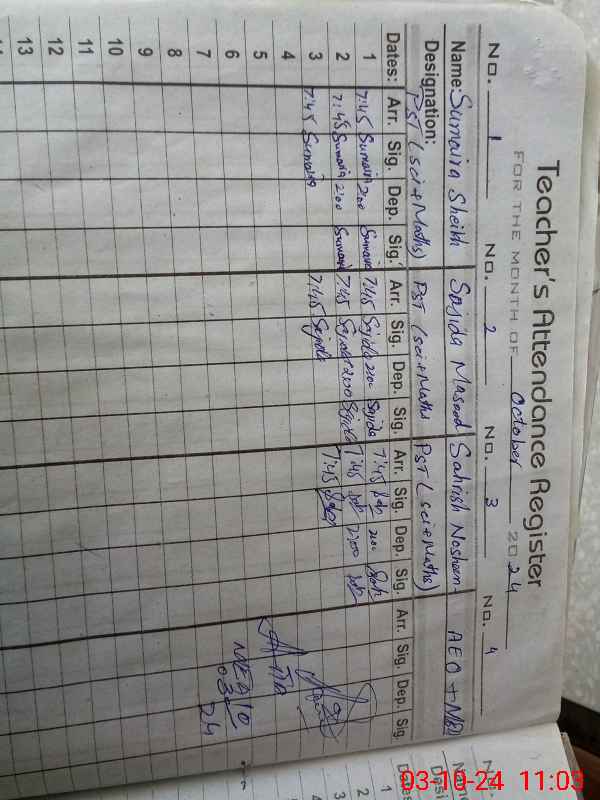 Teacher's Attendance Register
FOR THE MONTH OF October 2024
No. 1 No. 2 No. 3 No. 4
Name: Sumaira Sheikh Sajida Masood Sahrish Nosheen AEO +
Designation: PST (sci + Maths) PST (sci + Maths PST (sci + Maths)
Dates: Arr. Sig. Dep. Sig. Arr. Sig. Dep. Sig. Arr. Sig. Dep. Sig. Arr. Sig. Dep. Sig.
1 7:45 Sumaira 2:00 Sumaira 7:45 Sajida 2:00 Sajida 7:45 Sah 2:00 Sah
2 7:45 Sumaira 2:00 Sumaira 7:45 Sajida 2:00 Sajida 7:45 Sah 2:00 Sah
3 7:45 Sumaira 7:45 Sajida 7:45 Sah
4
5
6
7
8
9
10
11
12
13
No.
Name
Desi
Dates
1
2
3
4
03-10-24 11:03